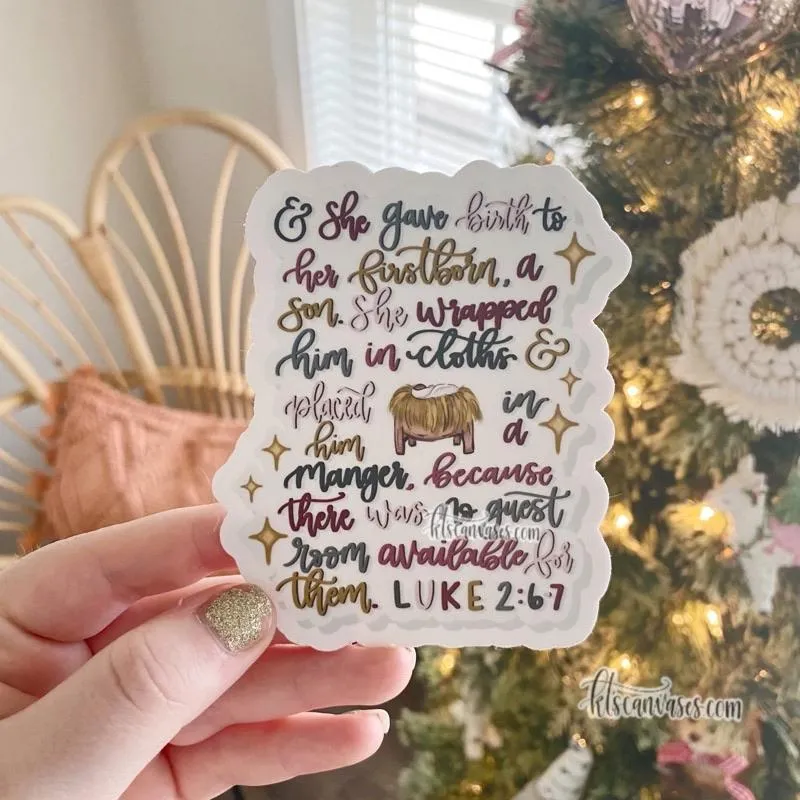 & She gave birth to
her firstborn, a
son. She wrapped
him in cloths &
placed in
him a
manger, because
there was no guest
ktscanvases.com
room available for
them. LUKE 2:6-7
ktscanvases.com